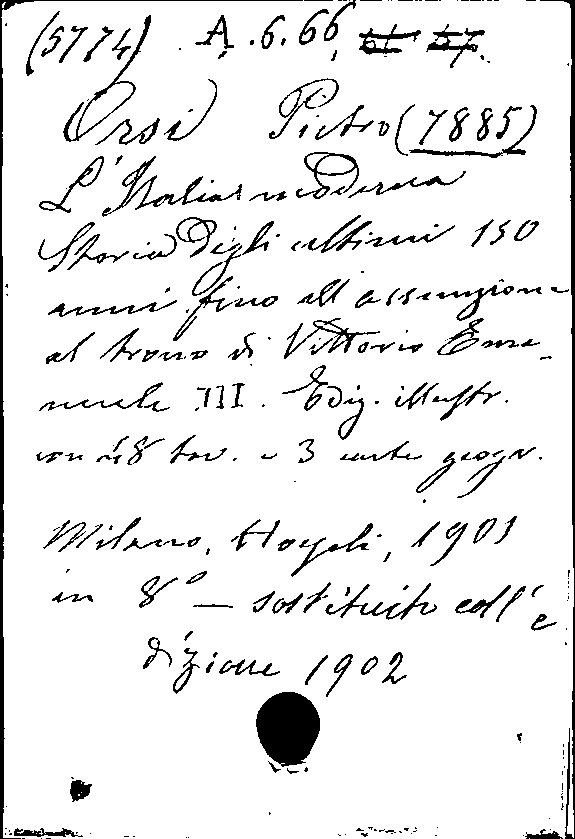 (5774) A.6.66, 61 57.
Orsi Pietro (7885)
L'Italia moderna
Storia degli ultimi 150
anni fino all'assunzione
al trono di Vittorio Ema-
nuele III. Ediz. illustr.
con 48 tav. e 3 carte geogr.
Milano, Hoepli, 1901
in 8° — sostituito coll'e
dizione 1902